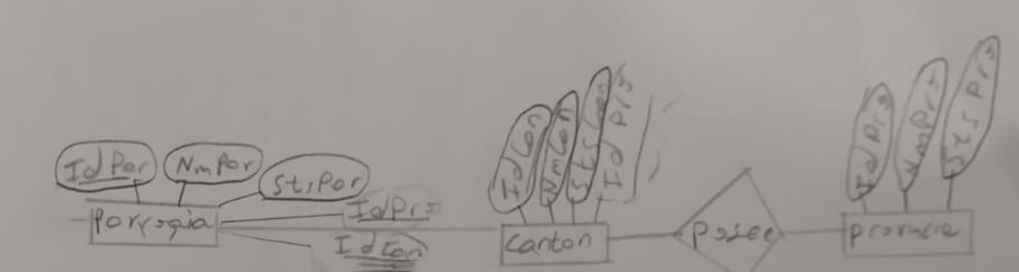 IdPar
NmPar
StsPar
Parroqia
IdPrs
IdCan
IdCan
NmCan
StsCan
IdPrs
Canton
posee
IdPrs
NmPrs
StsPrs
provincia